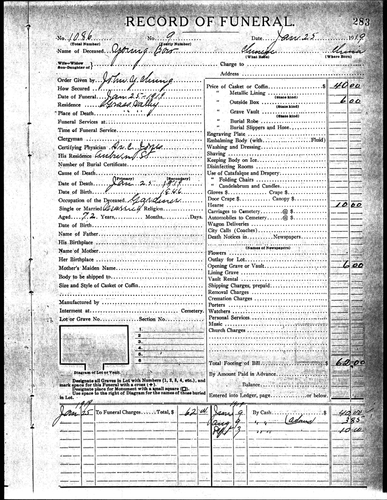 RECORD OF FUNERAL.
283
No. 1086 No. 9 Date Jan 25 1919
(Total Number) (Yearly Number)
Name of Deceased Young Bow Chinese China
(What Born) (Where Born)
Wife-Widow
Son-Daughter of
Charge to
Address
Order Given by John Y. Chung
How Secured
Date of Funeral Jan 25-1919
Residence Grass Valley
Place of Death
Funeral Services at
Time of Funeral Service
Clergyman
Certifying Physician Dr. C. Jones
His Residence Auburn St
Number of Burial Certificate
Cause of Death
(Primary) (Secondary)
Date of Death Jan 25 1919
Date of Birth 1846
Occupation of the Deceased Gardiner
Single or Married Married Religion
Aged 72 Years, Months, Days
Date of Birth
Name of Father
His Birthplace
Name of Mother
Her Birthplace
Mother's Maiden Name
Body to be shipped to
Size and Style of Casket or Coffin
Manufactured by
Interment at Cemetery.
Lot or Grave No. Section No.
Diagram of Lot or Vault
Designate all Graves in Lot with Numbers (1, 2, 3, 4, etc.), and
mark space for this Funeral with a cross (+)
Designate place for Monument with a small square (□).
Use the space to the right of Diagram for the names of those buried
in Lot.
Price of Casket or Coffin $ 40.00
" Metallic Lining
(State kind)
" Outside Box 6 00
(State kind)
" Grave Vault
(State kind)
" Burial Robe
(State kind)
" Burial Slippers and Hose
Engraving Plate
Embalming Body (with Fluid)
Washing and Dressing
Shaving
Keeping Body on Ice
Disinfecting Rooms
Use of Catafalque and Drapery
" Folding Chairs
" Candelabrum and Candles
Gloves $ Crape $
Door Crape $ Fancy $
Hearse 10 00
Carriages to Cemetery @ $
Automobiles to Cemetery @ $
Wagon Deliveries @ $
City Calls (Coaches)
Death Notices in Newspapers
(Names of Newspapers)
Flowers
Outlay for Lot
Opening Grave or Vault 6 00
Lining Grave
Vault Rental
Shipping Charges, prepaid
Removal Charges
Cremation Charges
Porters
Watchers
Personal Services
Music
Church Charges
Total Footing of Bill $ 62.00
By Amount Paid in Advance
Balance
Entered into Ledger, page or below.
1919
Jan 25 To Funeral Charges Total, $ 62 00
Jan 9 By Cash 40 00
Aug 9 " "
Sept 3 " " 10 00